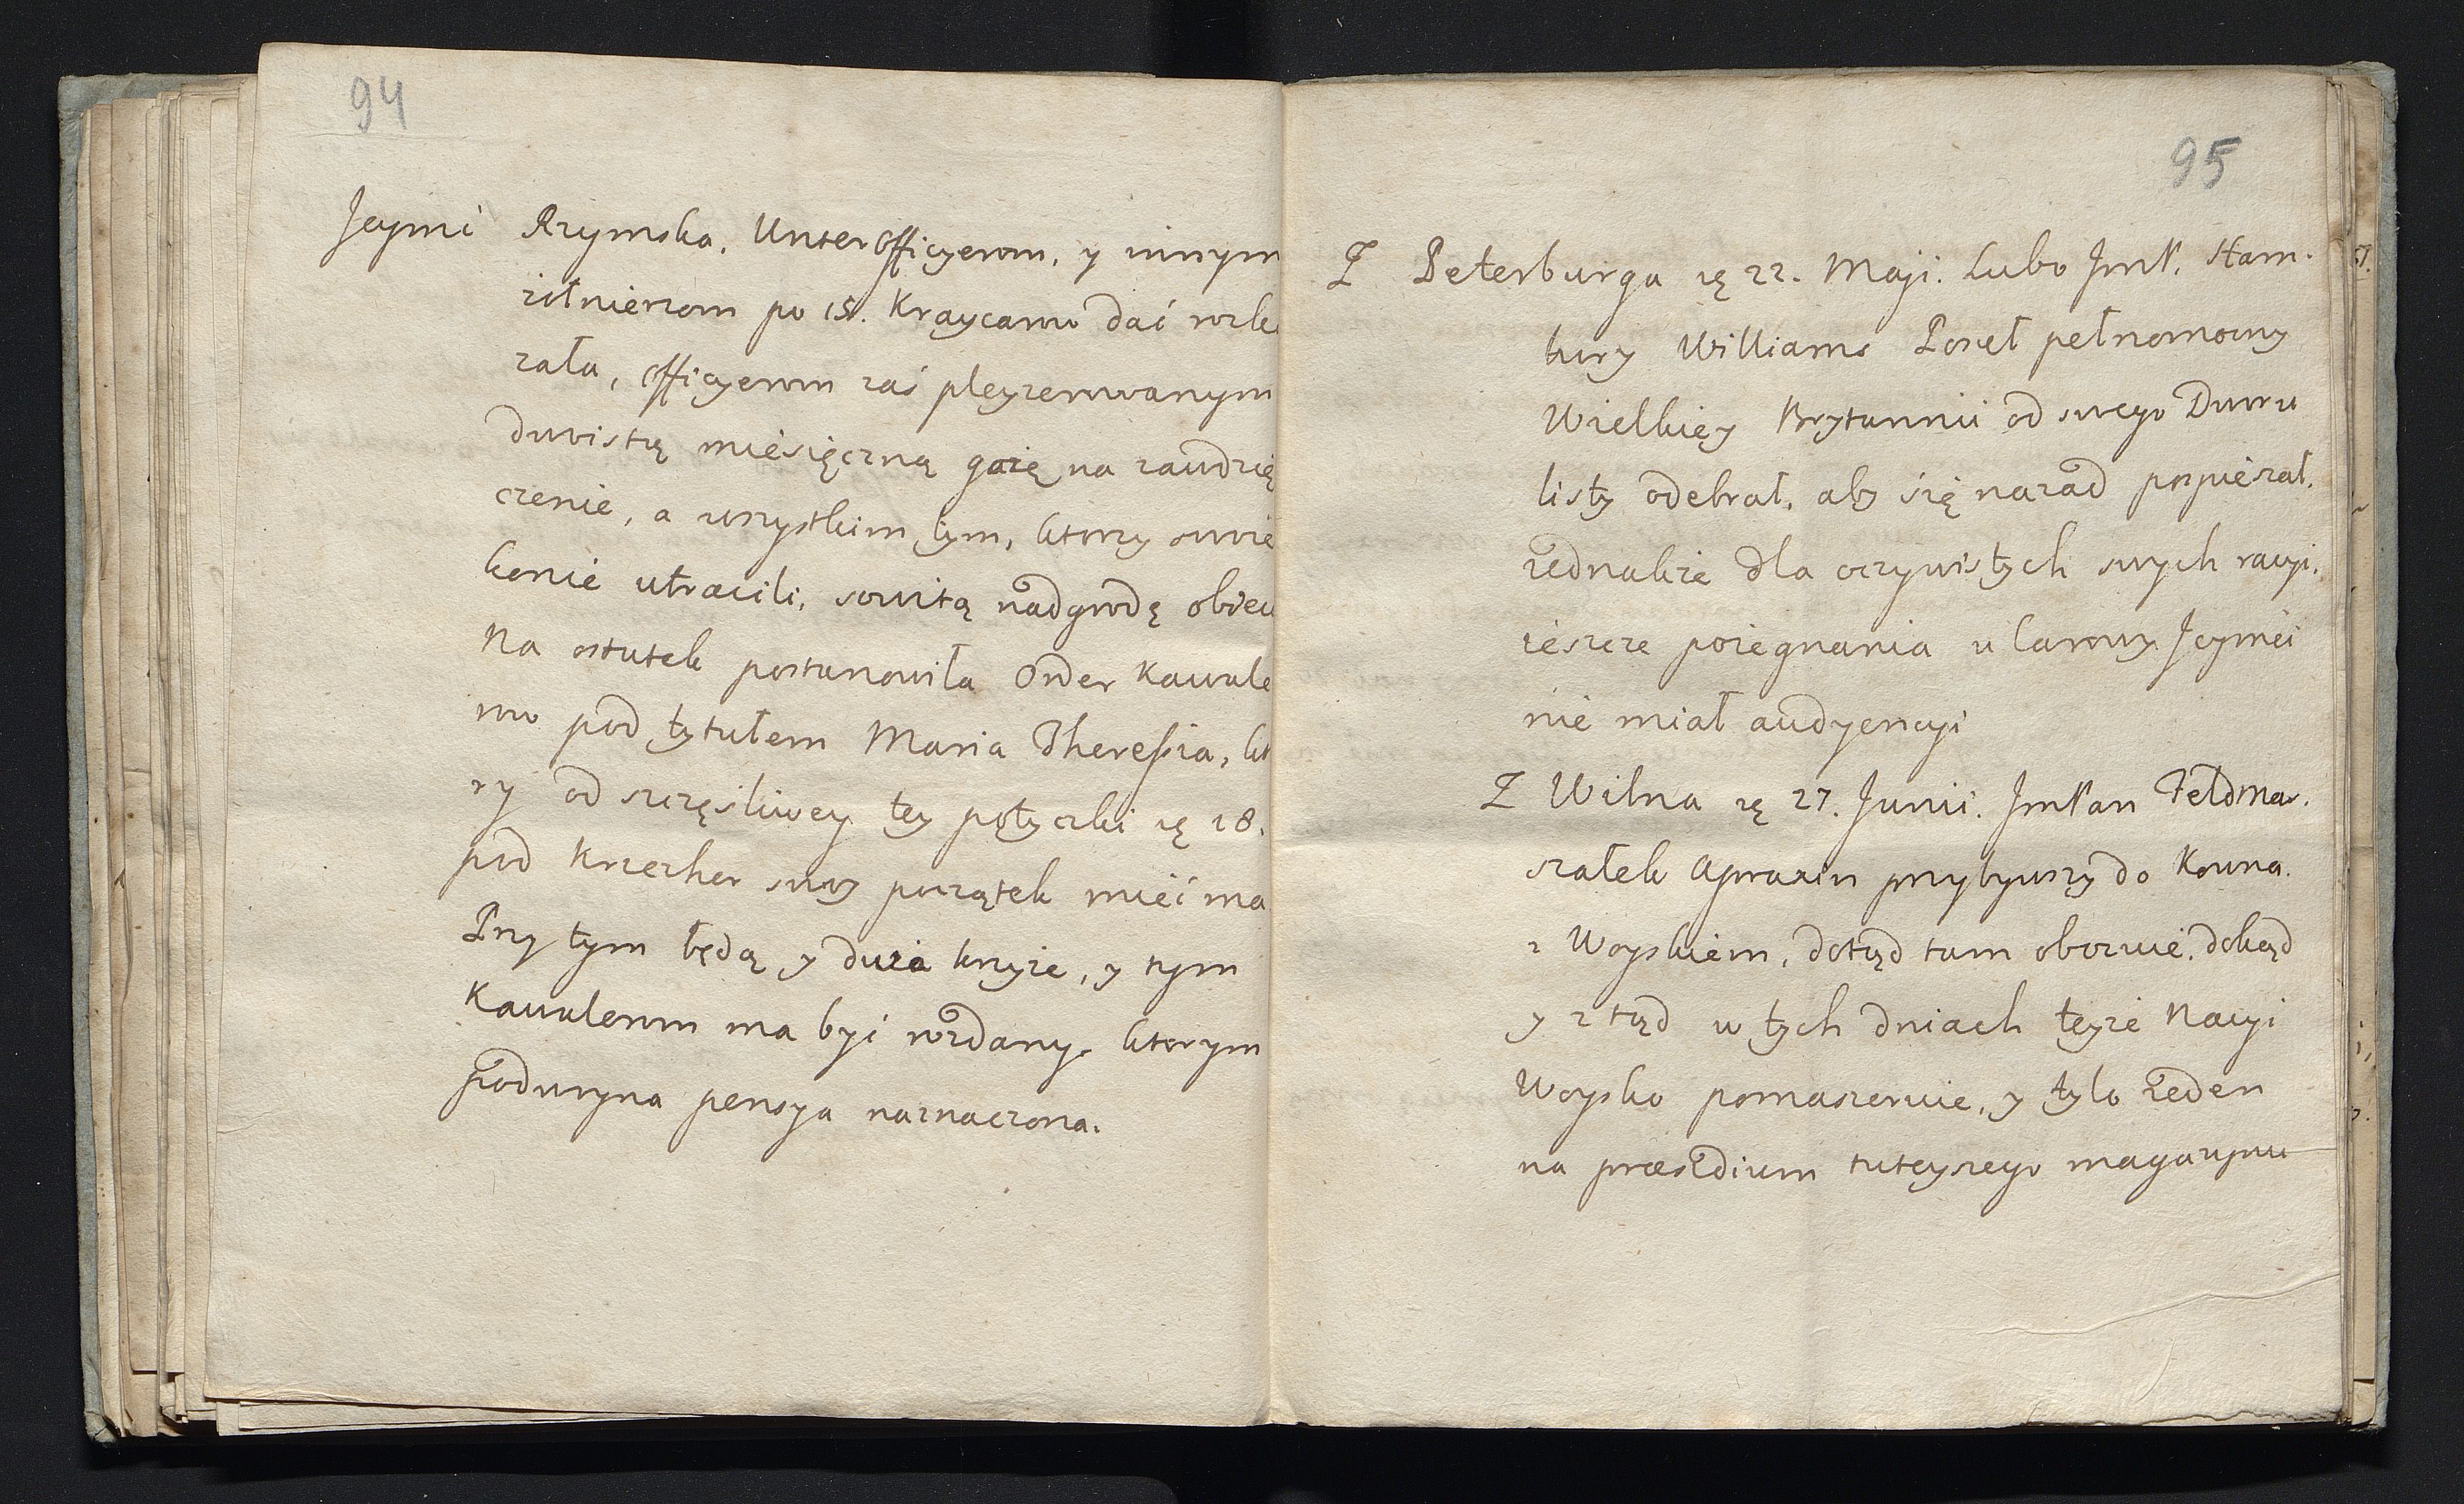 94
Jeymć Rzymska. Unterofficyerom, y innym
żołnierzom po 15. Kraycarow dać rozka
zała, officyerom zaś pleyzerowanym
dwoistą miesięczną gażę na zawdzię
czenie, a wszystkim tym, ktorzy swoie
konie utracili, sowitą nadgrodę obiec
Na ostatek postanowiła Order Kawale
row pod tytułem Maria Theresia, kt
ry od szczęśliwey tey potyczki ię 18.
pod Krzecher swoy początek mieć ma
Przy tym będą y duże krzyże, y tym
Kawalerom ma być rozdany, ktorym
podwoyna pensya naznaczona.
95
Z Petersburga ię 22. Maji. Lubo JmP. Ham-
bury Williams Poseł pełnomocny
Wielkiey Brytannii od swego Dworu
listy odebrał, aby się nazad pospieszał.
iednakże dla oczywistych swych racyi,
ieszcze pożegnania u Carowy Jeymći
nie miał audyencyi
Z Wilna ię 27. Junii. JmPan Feldmar-
szałek Apraxin przybywszy do Kowna.
z Woyskiem, dotąd tam obozuie, dokąd
y ztąd w tych dniach teyże Nacyi
Woysko pomaszeruie, y tylo ieden
na præsidium tuteyszego magazynu